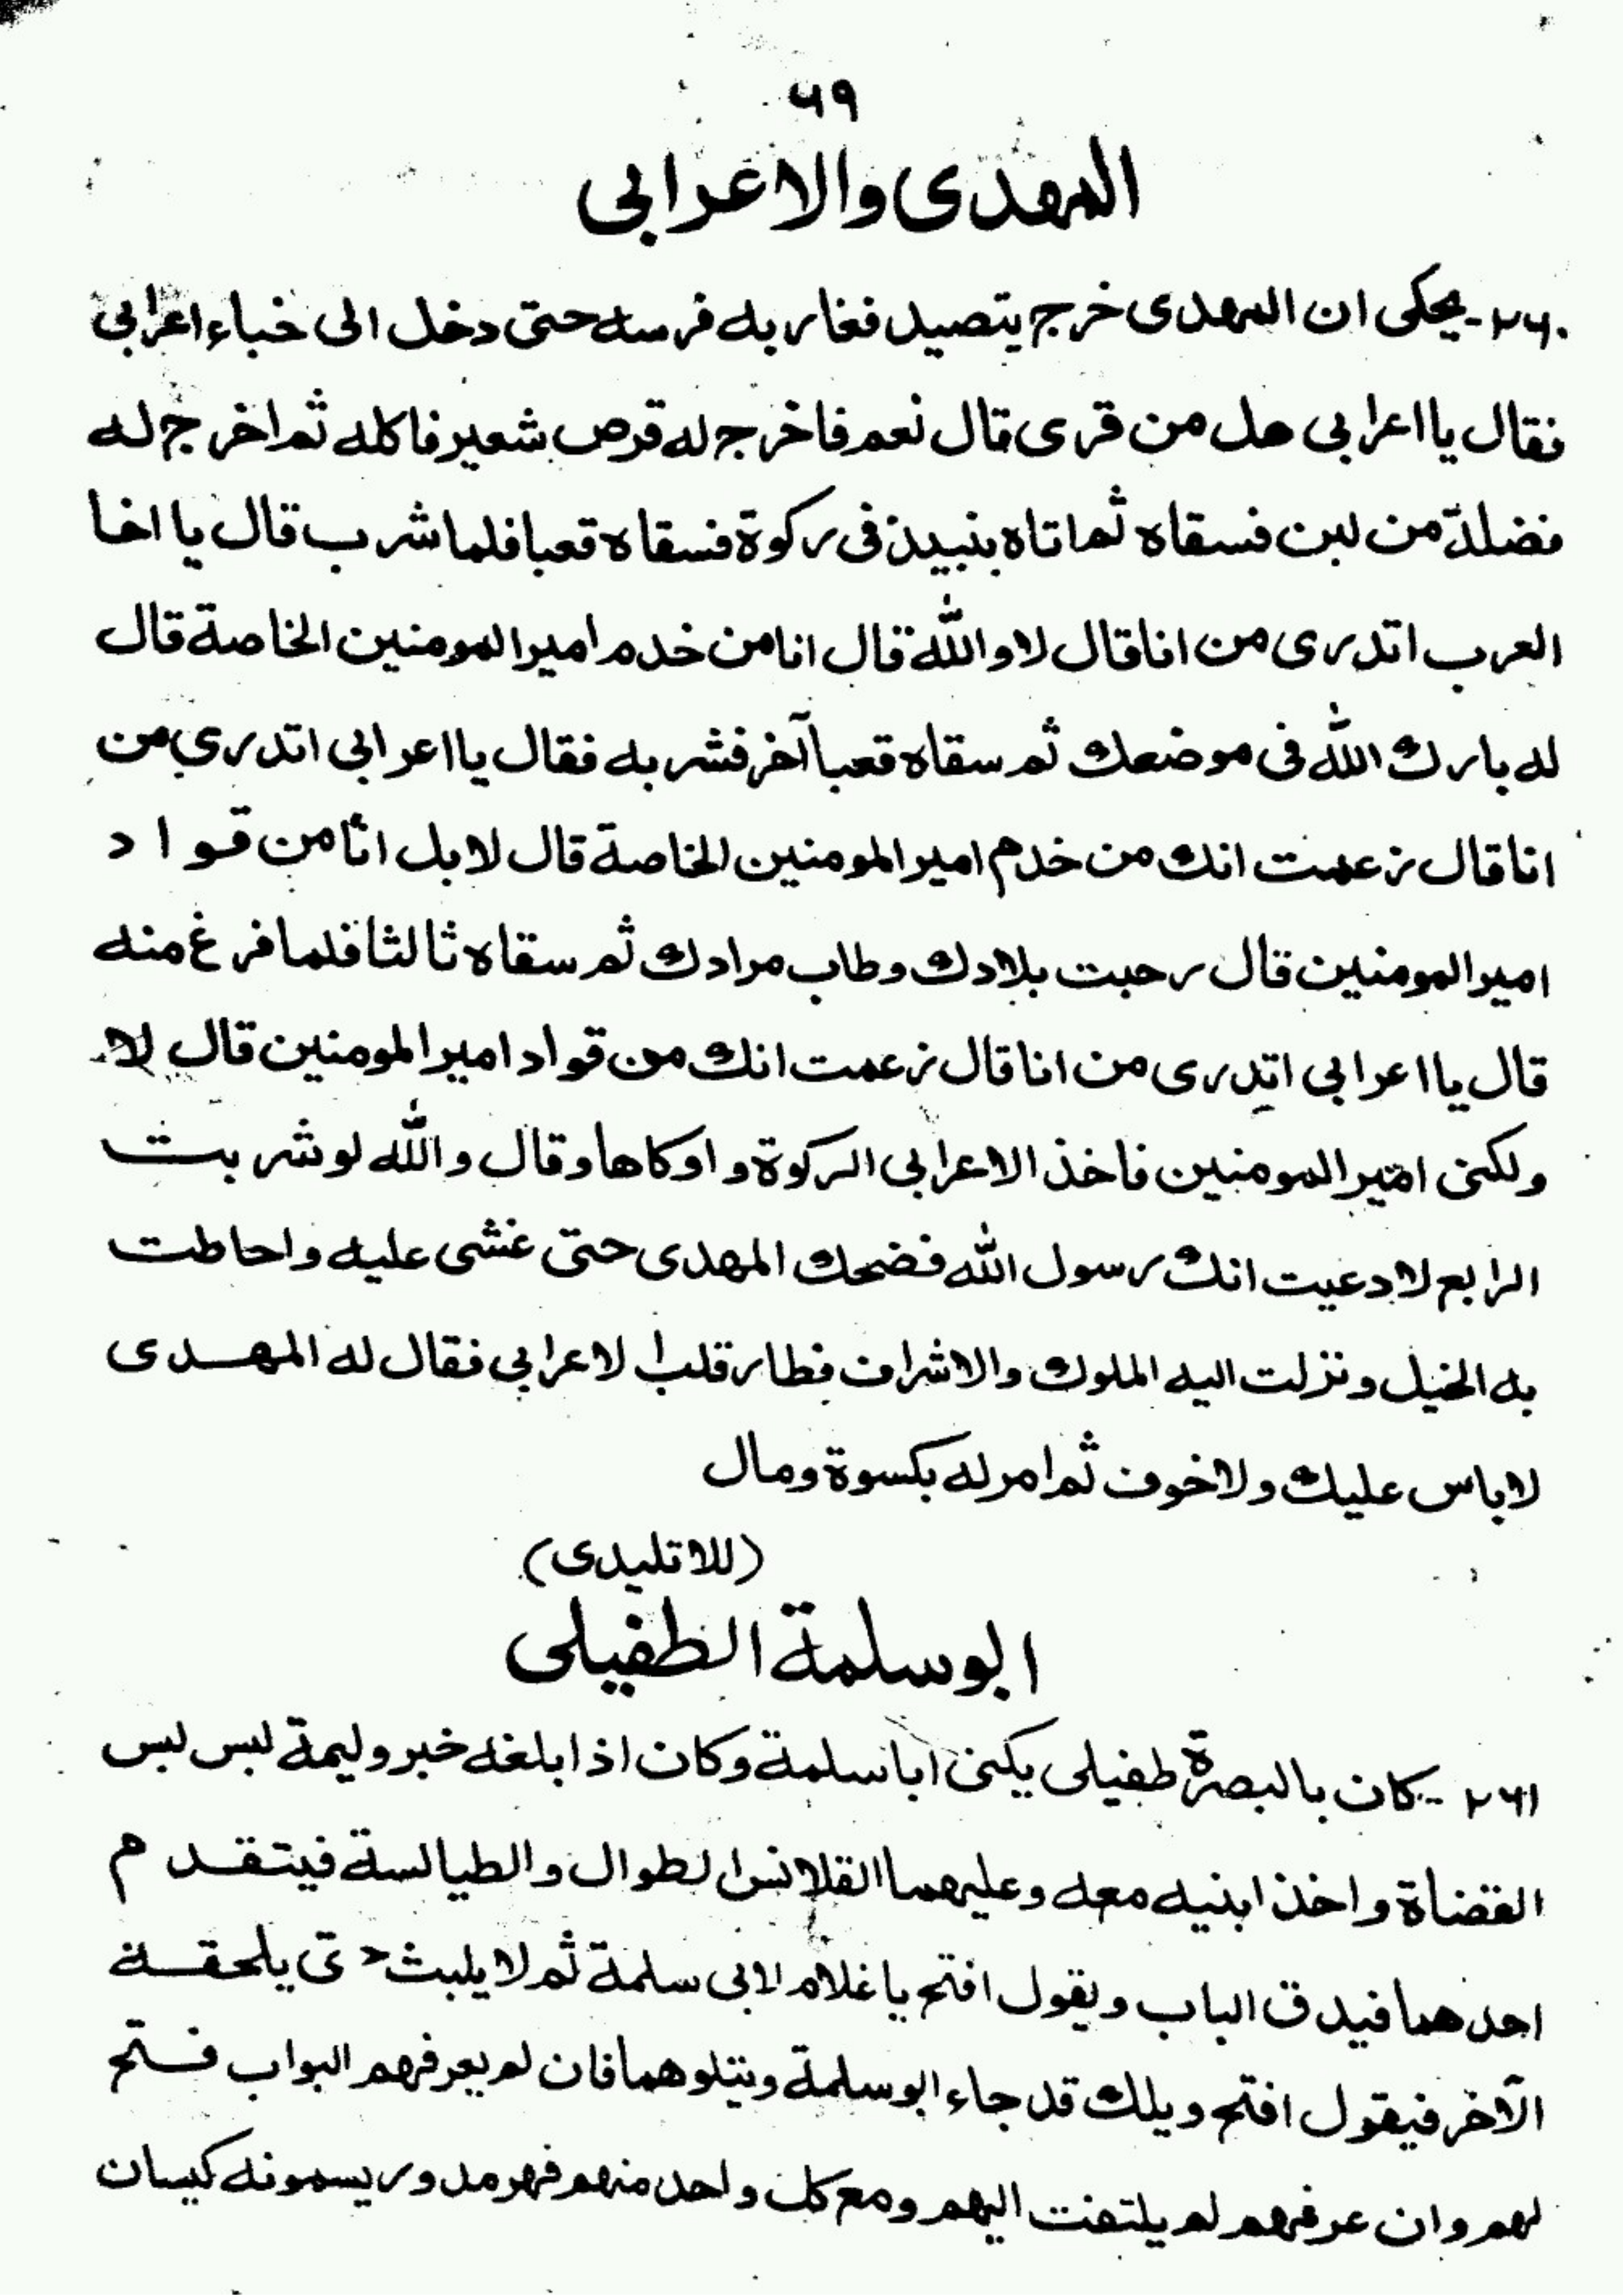 ۶۹
المهدى والاعرابى
۲۶۰- يحكى ان المهدى خرج يتصيد فغار به فرسه حتى دخل الى خباء اعرابى
فقال يا اعرابى هل من قرى قال نعم فاخرج له قرص شعير فاكله ثم اخرج له
فضلة من لبن فسقاه ثم اتاه بنبيذ فى ركوة فسقاه قعبا فلما شرب قال يا اخا
العرب اتدرى من انا قال لا والله قال انا من خدم امير المومنين الخاصة قال
له بارك الله فى موضعك ثم سقاه قعبا آخر فشربه فقال يا اعرابى اتدرى من
انا قال زعمت انك من خدم امير المومنين الخاصة قال لا بل انا من قواد
امير المومنين قال رحبت بلادك وطاب مرادك ثم سقاه ثالثا فلما فرغ منه
قال يا اعرابى اتدرى من انا قال زعمت انك من قواد امير المومنين قال لا
ولكنى امير المومنين فاخذ الاعرابى الركوة و اوكاها وقال والله لو شربت
الرابع لادعيت انك رسول الله فضحك المهدى حتى غشى عليه واحاطت
به الخيل ونزلت اليه الملوك والاشراف فطار قلب الاعرابى فقال له المهدى
لا باس عليك ولا خوف ثم امر له بكسوة ومال
(للاتليدى)
ابو سلمة الطفيلى
۲۶۱- كان بالبصرة طفيلى يكنى ابا سلمة وكان اذا بلغه خبر وليمة لبس لبس
القضاة واخذ ابنيه معه وعليهما القلانس الطوال والطيالسة فيتقدم
احدهما فيدق الباب ويقول افتح يا غلام لابى سلمة ثم لا يلبث حتى يلحقه
الآخر فيقول افتح ويلك قد جاء ابو سلمة ويتلوهما فان لم يعرفهم البواب فتح
لهم وان عرفهم لم يلتفت اليهم ومع كل واحد منهم فهر مدور يسمونه كيسان